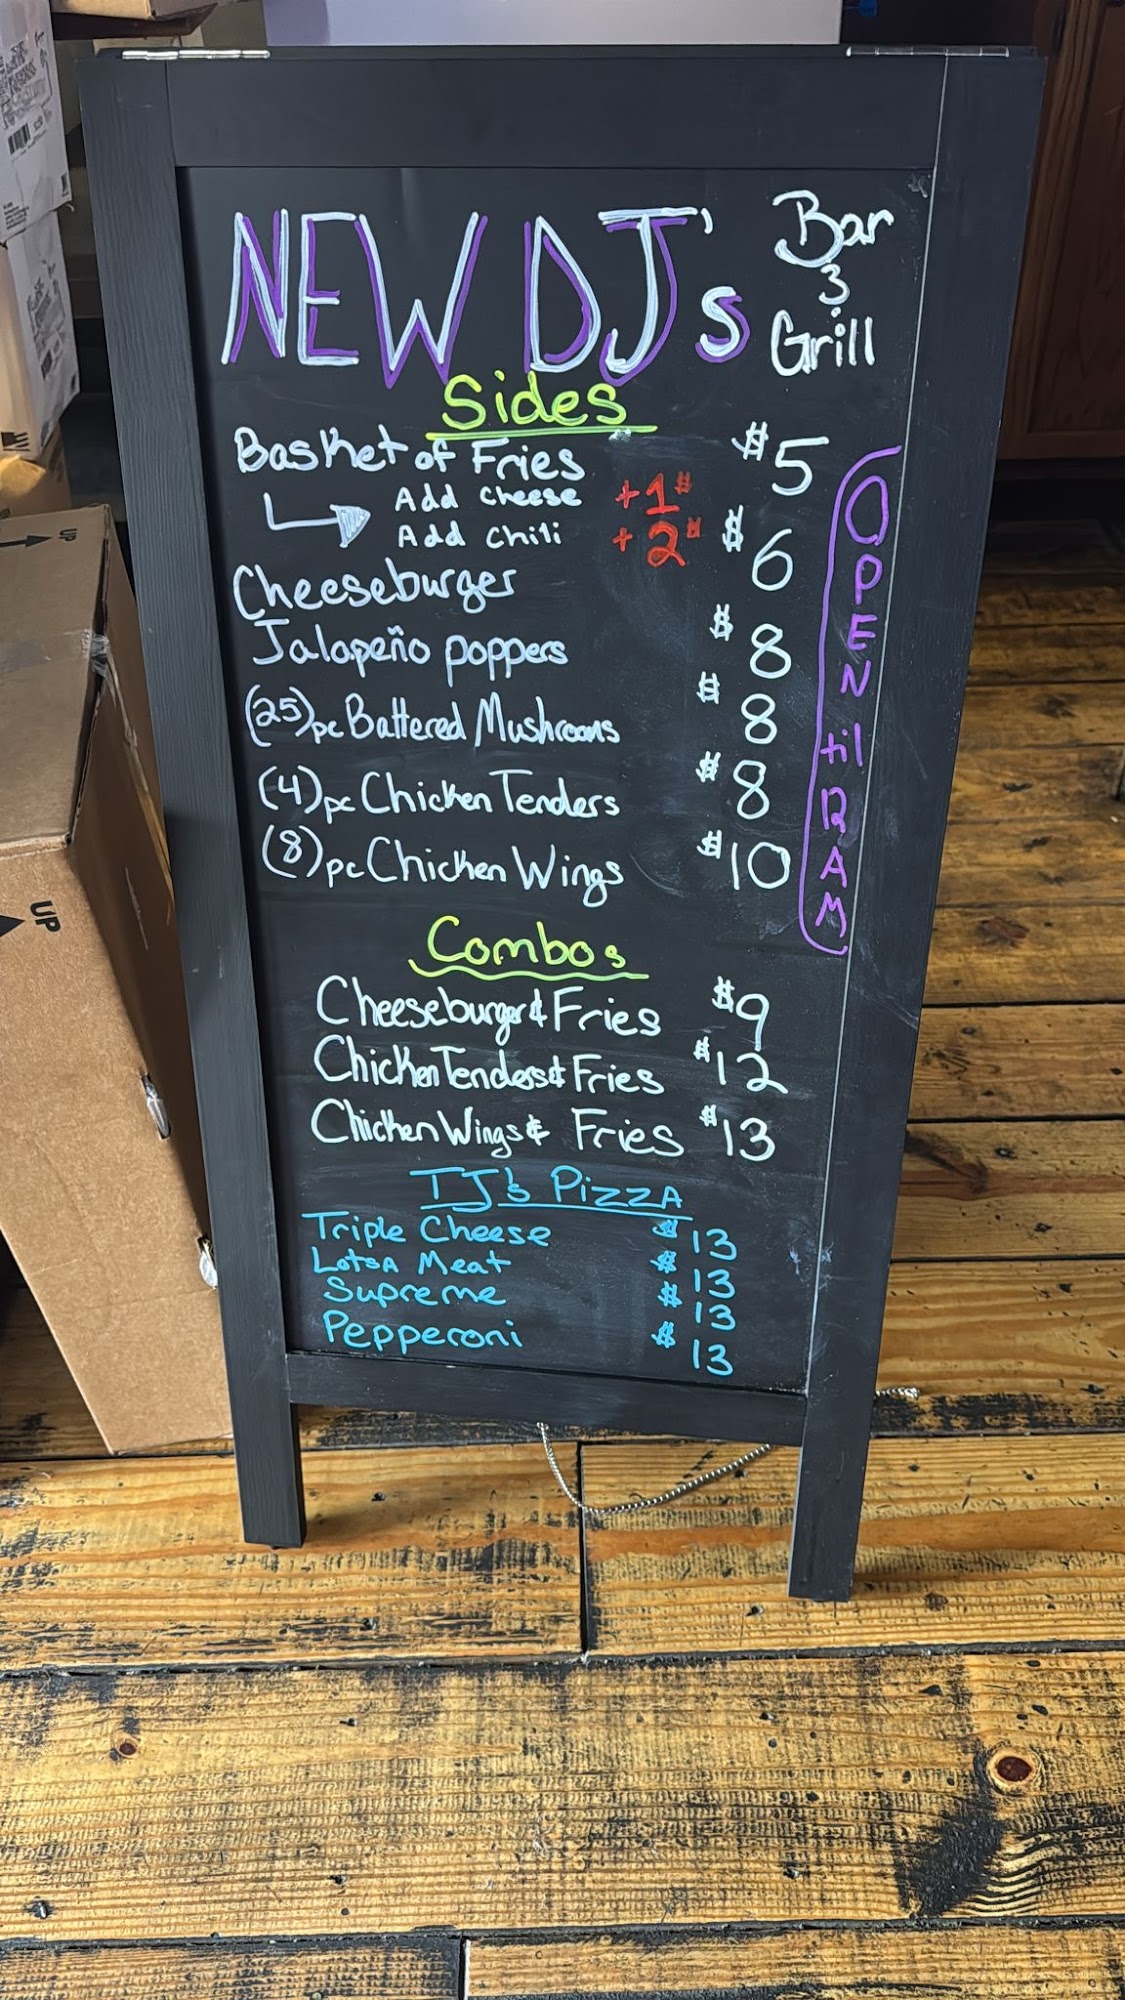 NEW DJ's Bar & Grill
Sides
Basket of Fries $5
Add Cheese +1$
Add Chili +2$
Cheeseburger $6
Jalapeño poppers $8
(25)pc Battered Mushrooms $8
(4)pc Chicken Tenders $8
(8)pc Chicken Wings $10
OPEN til 12AM
Combos
Cheeseburger & Fries $9
Chicken Tenders & Fries $12
Chicken Wings & Fries $13
TJ's Pizza
Triple Cheese $13
Lotsa Meat $13
Supreme $13
Pepperoni $13
UP
UP